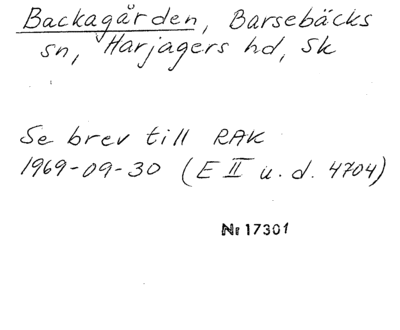 Backagården, Barsebäcks
sn, Harjagers hd, Sk
Se brev till RAK
1969-09-30 (E II u. d. 4704)
Nr 17301